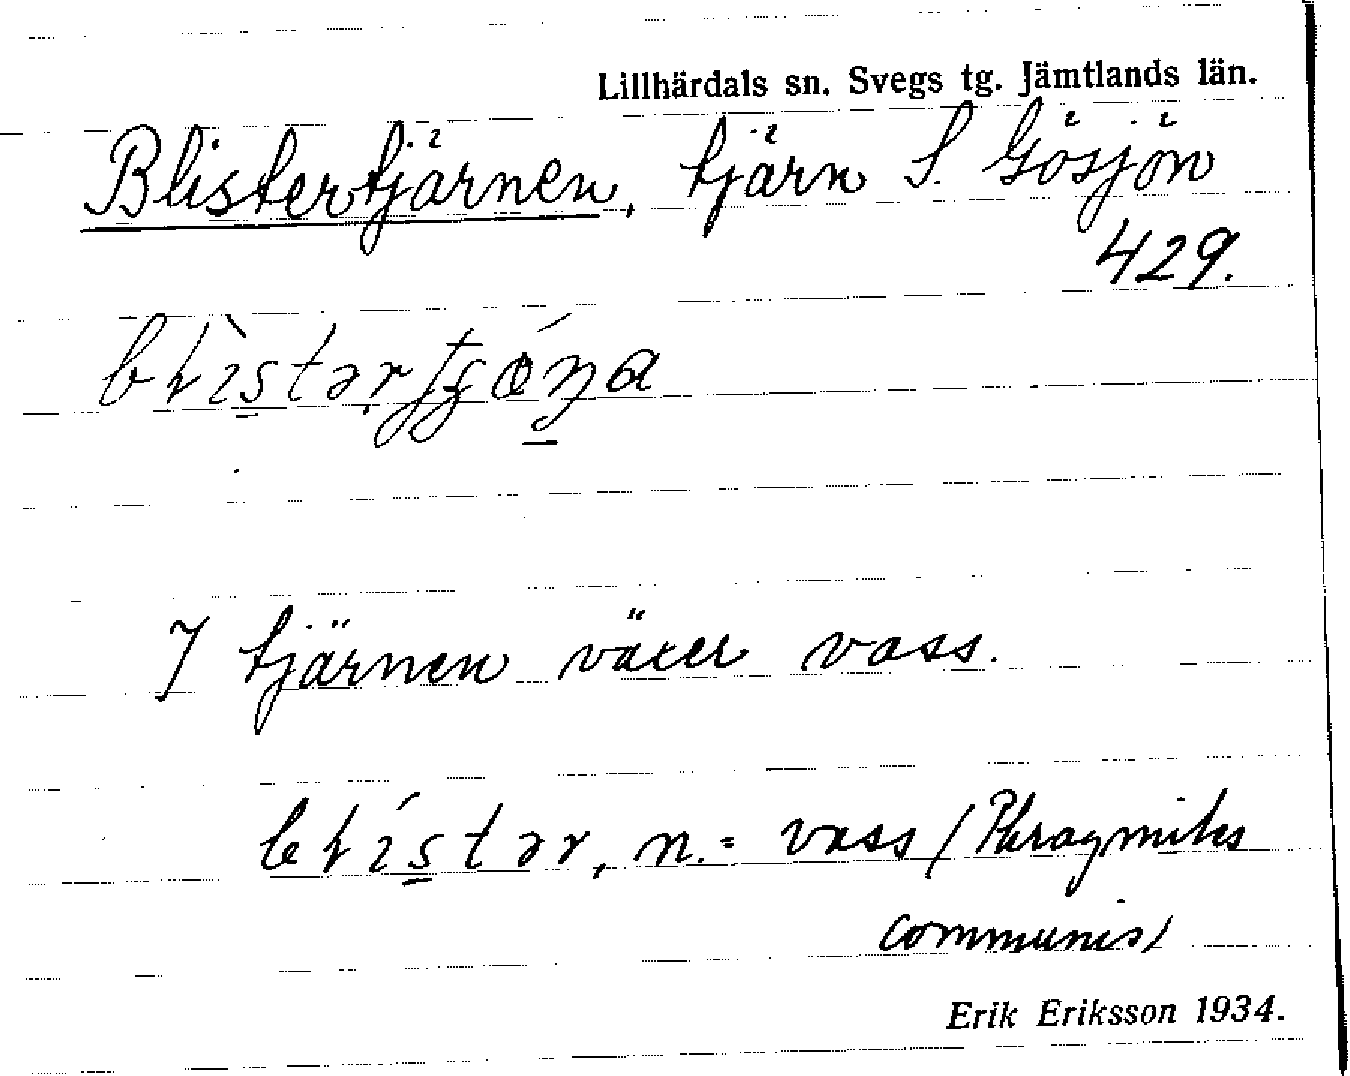 Lillhärdals sn. Svegs tg. Jämtlands län.
Blistertjärnen, tjärn S. Gösjön
429.
I tjärnen växer vass.
n. = vass (Phragmites
communis)
Erik Eriksson 1934.